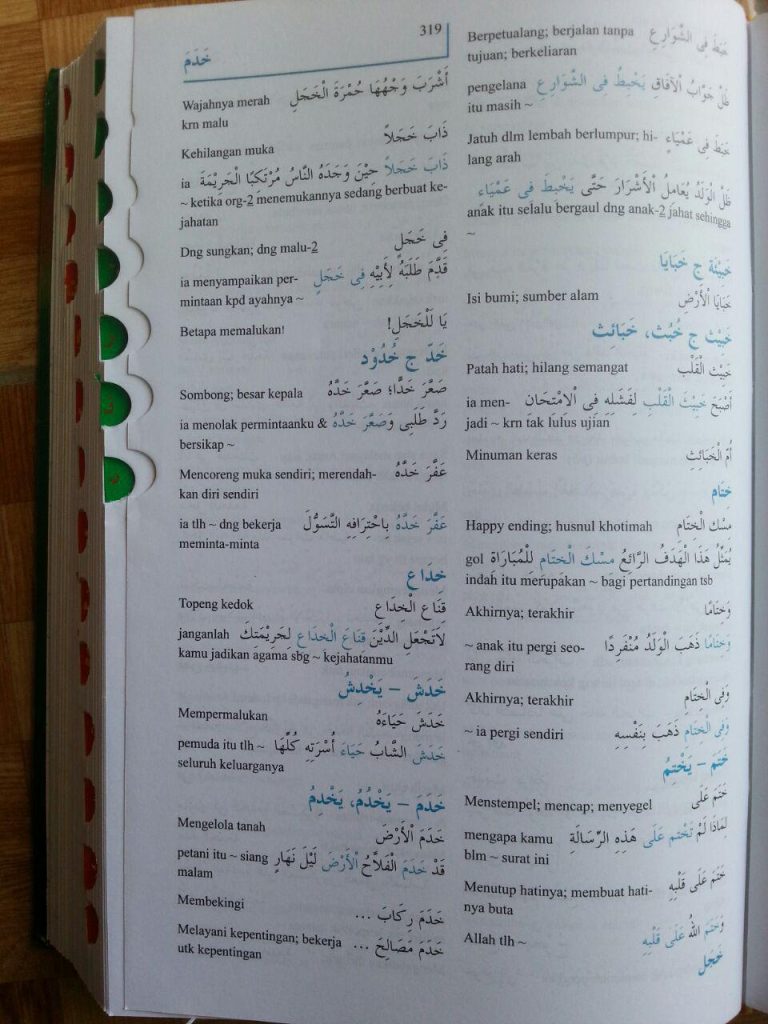 319
خَدَمَ
خَبَطَ فِي الشَّوَارِعِ Berpetualang; berjalan tanpa
tujuan; berkeliaran
ظَلَّ جَوَّابُ اْلآفَاقِ يَخْبِطُ فِي الشَّوَارِعِ pengelana
itu masih ~
خَبَطَ فِي عَمْيَاءٍ Jatuh dlm lembah berlumpur; hi-
lang arah
ظَلَّ الْوَلَدُ يُعَامِلُ اْلأَشْرَارَ حَتَّى يَخْبِطَ فِي عَمْيَاء
anak itu selalu bergaul dng anak-2 jahat sehingga
~
خَبِيْئَة ج خَبَايَا
خَبَايَا اْلأَرْضِ Isi bumi; sumber alam
خَبِيْث ج خُبُث، خَبَائِث
خَبِيْث الْقَلْبِ Patah hati; hilang semangat
أَصْبَحَ خَبِيْثَ الْقَلْبِ لِفَشَلِهِ فِي اْلاِمْتِحَانِ ia men-
jadi ~ krn tak lulus ujian
أُمّ الْخَبَائِثِ Minuman keras
خِتَام
مِسْك الْخِتَامِ Happy ending; husnul khotimah
يُمَثِّلُ هَذَا الْهَدَفُ الرَّائِعُ مِسْكَ الْخِتَامِ لِلْمُبَارَاةِ gol
indah itu merupakan ~ bagi pertandingan tsb
وَخِتَامًا Akhirnya; terakhir
وَخِتَامًا ذَهَبَ الْوَلَدُ مُنْفَرِدًا ~ anak itu pergi seo-
rang diri
وَفِي الْخِتَامِ Akhirnya; terakhir
وَفِي الْخِتَامِ ذَهَبَ بِنَفْسِهِ ~ ia pergi sendiri
خَتَمَ – يَخْتِمُ
خَتَمَ عَلَى Menstempel; mencap; menyegel
لِمَاذَا لَمْ تَخْتِم عَلَى هَذِهِ الرِّسَالَةِ mengapa kamu
blm ~ surat ini
خَتَمَ عَلَى قَلْبِهِ Menutup hatinya; membuat hati-
nya buta
وَخَتَمَ اللهُ عَلَى قَلْبِهِ Allah tlh ~
خَجَل
أَشْرَبَ وَجْهُهَا حُمْرَةَ الْخَجَلِ Wajahnya merah
krn malu
ذَابَ خَجَلاً Kehilangan muka
ذَابَ خَجَلاً حِيْنَ وَجَدَهُ النَّاسُ مُرْتَكِبًا الْجَرِيْمَةَ ia
~ ketika org-2 menemukannya sedang berbuat ke-
jahatan
فِي خَجَلٍ Dng sungkan; dng malu-2
قَدَّمَ طَلَبَهُ لِأَبِيْهِ فِي خَجَلٍ ia menyampaikan per-
mintaan kpd ayahnya ~
يَا لَلْخَجَلِ! Betapa memalukan!
خَدّ ج خُدُوْد
صَعَّرَ خَدًّا؛ صَعَّرَ خَدَّهُ Sombong; besar kepala
رَدَّ طَلَبِي وَصَعَّرَ خَدَّهُ ia menolak permintaanku &
bersikap ~
عَفَّرَ خَدَّهُ Mencoreng muka sendiri; merendah-
kan diri sendiri
عَفَّرَ خَدَّهُ بِاحْتِرَافِهِ التَّسَوُّلَ ia tlh ~ dng bekerja
meminta-minta
خِدَاع
قِنَاع الْخِدَاعِ Topeng kedok
لاَتَجْعَلِ الدِّيْنَ قِنَاعَ الْخِدَاعِ لِجَرِيْمَتِكَ janganlah
kamu jadikan agama sbg ~ kejahatanmu
خَدَشَ – يَخْدِشُ
خَدَشَ حَيَاءَهُ Mempermalukan
خَدَشَ الشَّابُ حَيَاءَ أُسْرَتِهِ كُلَّهَا pemuda itu tlh ~
seluruh keluarganya
خَدَمَ – يَخْدُمُ، يَخْدِمُ
خَدَمَ اْلأَرْضَ Mengelola tanah
قَدْ خَدَمَ الْفَلاَّحُ اْلأَرْضَ لَيْلَ نَهَارٍ petani itu ~ siang
malam
خَدَمَ رِكَابَ ... Membekingi
خَدَمَ مَصَالِحَ ... Melayani kepentingan; bekerja
utk kepentingan